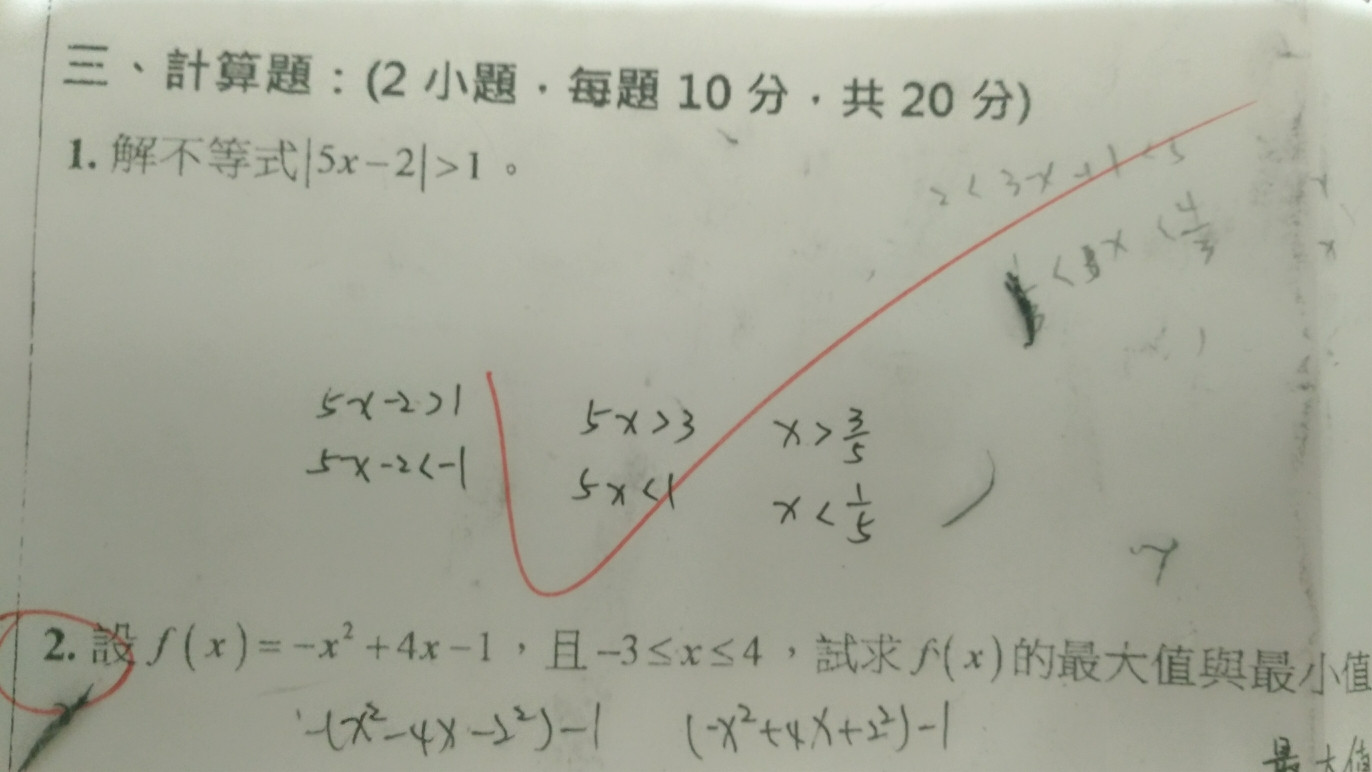 三、計算題：(2 小題，每題 10 分，共 20 分)
1. 解不等式|5x-2|>1。
2<3x+1<5
5x-2>1 5x>3 x>3/5
5x-2<-1 5x<1 x<1/5
2. 設 f(x)=-x²+4x-1，且-3≤x≤4，試求 f(x)的最大值與最小值
-(x²-4x-2²)-1 (-x²+4x+2²)-1
最大值